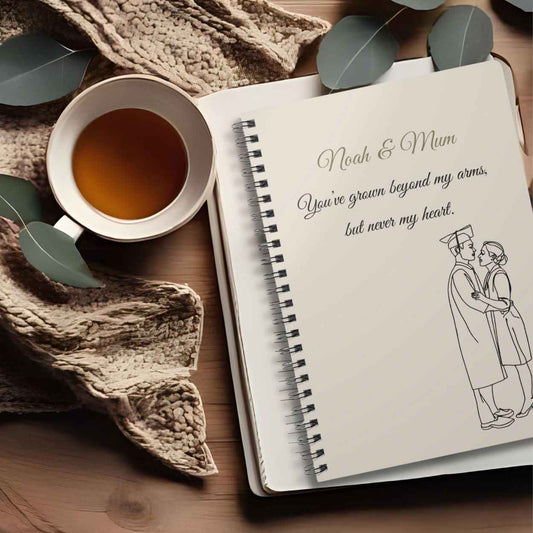 Noah & Mum
You've grown beyond my arms,
but never my heart.